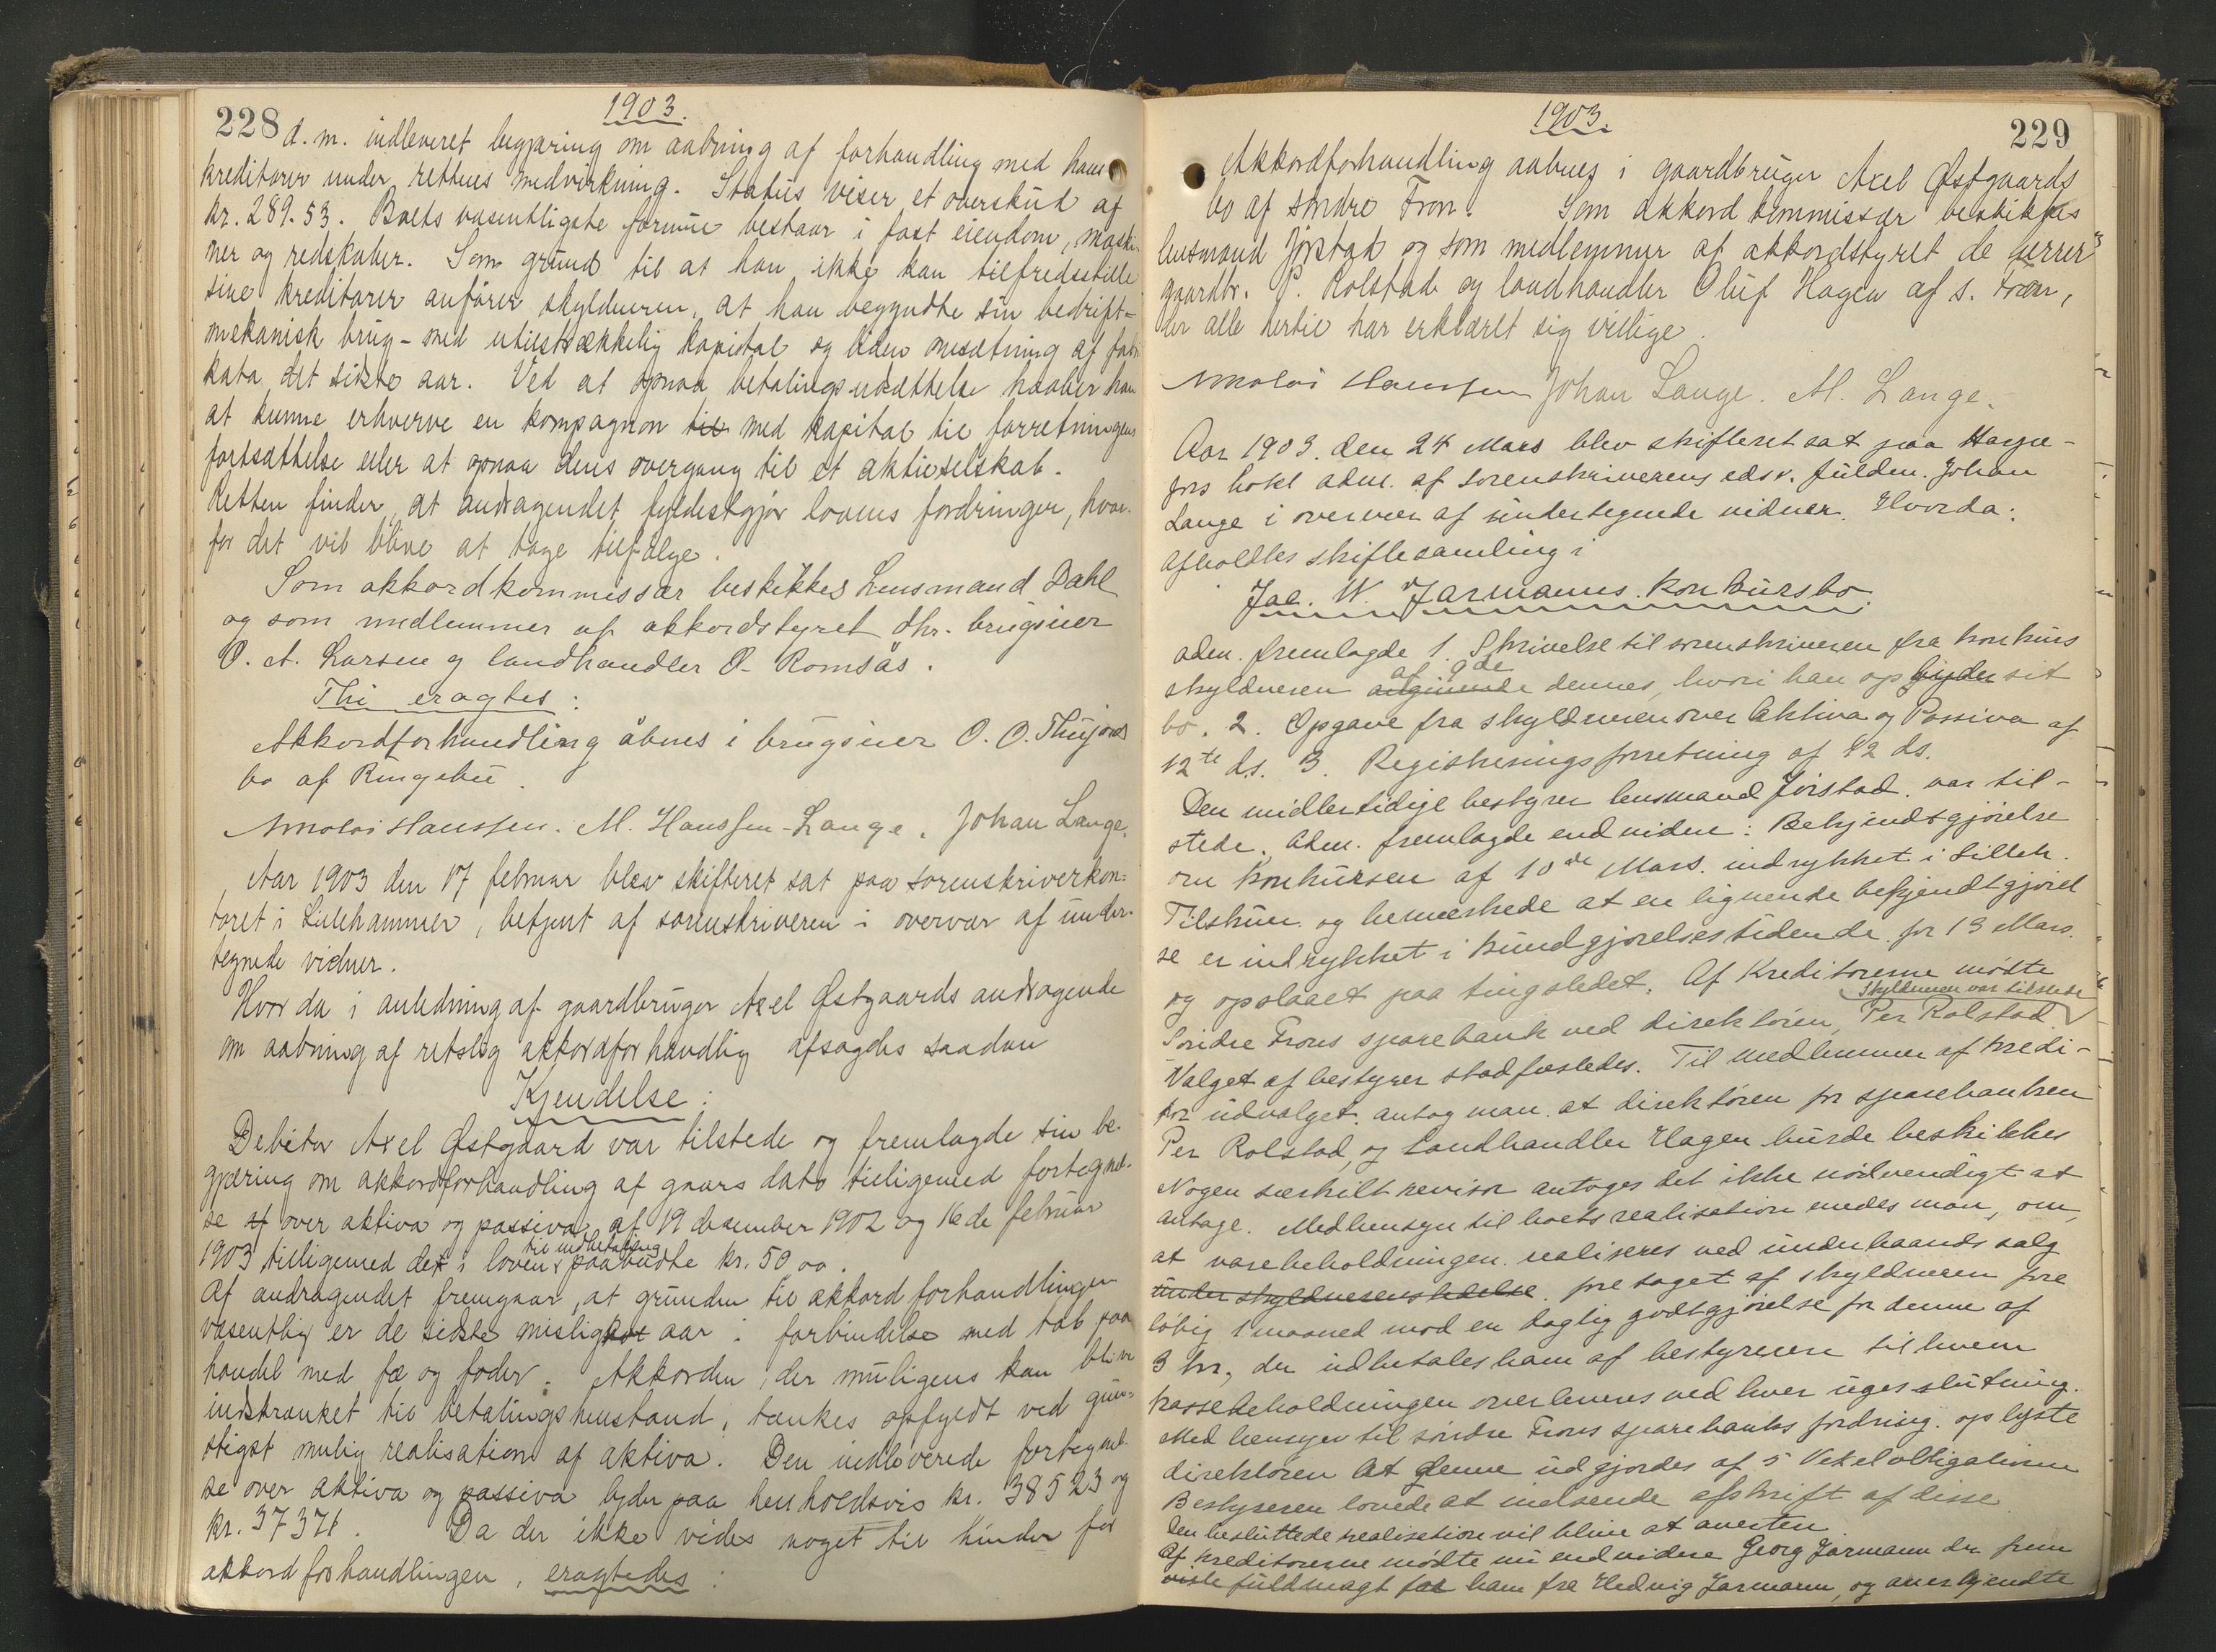 228
1903.
d. m. indleveret begjæring om aabning af forhandling med hans
kreditorer under rettens medvirkning. Status viser et overskud af
kr. 289.53. Boets væsentligste formue bestaar i fast eiendom, maski-
ner og redskaber. Som grund til at han ikke kan tilfredsstille
sine kreditorer anfører skyldneren, at han begyndte sin bedrift -
mekanisk brug - med utilstrækkelig kapital og liden omsætning af fabri
kata det sidste aar. Ved at opnaa betalingsudsættelse haaber han
at kunne erhverve en kompagnon til med kapital til forretningens
fortsættelse eller at opnaa dens overgang til et aktieselskab.
Retten finder, at andragendet fyldestgjør lovens fordringer, hvor-
for det vil blive at tage tilfølge.
Som akkordkommissær beskikkes Lensmand Dahl
og som medlemmer af akkordstyret dhr. brugseier
O. A. Larsen og landhandler O. Romsås.
Thi eragtes:
Akkordforhandling åbnes i brugseier O. O. Thujords
bo af Ringebu.
Nikolai Hanssen. M. Hanssen-Lange. Johan Lange.
Aar 1903 den 17 februar blev skifteret sat paa sorenskriverkon-
toret i Lillehammer, betjent af sorenskriveren i overvær af under-
tegnede vidner.
Hvor da i anledning af gaardbruger Axel Østgaards andragende
om aabning af retslig akkordforhandlig afsagdes saadan
Kjendelse:
Debitor Axel Østgaard var tilstede og fremlagde sin be-
gjæring om akkordforhandling af gaars dato tilligemed fortegnel-
se af over aktiva og passiva af 19 desember 1902 og 16de februar
til indbetaling
1903 tilligemed det i loven paabudte kr. 50 00.
Af andragendet fremgaar, at grunden til akkordforhandlingen
væsentlig er de sidste mislige aar i forbindelse med tab paa
handel med fæ og foder. Akkorden, der muligens kan blive
indskrænket til betalingshenstand, tænkes opfyldt ved gun-
stigst mulig realisation af aktiva. Den indleverede fortegnel-
se over aktiva og passiva lyder paa henholdsvis kr. 38523 og
kr. 37371. Da der ikke vides noget til hinder for
akkordforhandlingen, eragtedes:
1903.
229
Akkordforhandling aabnes i gaardbruger Axel Østgaards
bo af søndre Fron. Som akkordkommissær beskikkes
lensmand Jørstad og som medlemmer af akkordstyret de herrer
gaardbr. P. Rolstad og landhandler Oluf Hagen af s. Fron,
der alle hertil har erklæret sig villige.
Nikolai Hanssen Johan Lange. M. Lange.
Aar 1903. den 24 Mars blev skifteret sat paa
hotel adm. af sorenskriverens edsv. fuldm. Johan
Lange i overvær af undertegnede vidner. Hvorda:
afholdtes skiftesamling i
Jac. W. Jarmanns konkursbo.
adm. fremlagde 1. Skrivelse til sorenskriveren fra konkurs
skyldneren dennes, hvori han opbyder sit
bo. 2. Opgave fra skyldneren over Aktiva og Passiva af
12te ds. 3. Registreringsforretning af 12 ds.
Den midlertidige bestyrer lensmand Jørstad. var til-
stede. Adm. fremlagde endvidere: Bekjendtgjørelse
om konkursen af 10de Mars. indrykket i Lilleh.
Tilskuer. og bemærkede at en lignende bekjendtgjørel
se er indrykket i kundgjørelsestidende for 13 Mars.
og opslaaet paa tingstedet. Af Kreditorerne mødte
Skyldneren var tilstede
Søndre Frons sparebank ved direktøren, Per Rolstad.
Valget af bestyrer stadfæstedes. Til medlemmer af kredi-
tor udvalget. antog man. at direktøren for sparebanken
Per Rolstad, og Landhandler Hagen burde beskikkes
Nogen særskilt revisor antoges det ikke nødvendigt at
antage. Medhensyn til boets realisation enedes man, om,
at varebeholdningen. realiseres ved underhaands salg
under skyldnerens ledelse. foretaget af skyldneren fore
løbig 1 maaned mod en daglig godtgjørelse for denne af
3 kr., der udbetales ham af bestyreren til hvem
kassebeholdningen overleveres ved hver uges slutning.
Med hensyn til søndre Frons sparebanks fordring. oplyste
direktøren At denne udgjordes af 5 Vexelobligationer
Bestyreren lovede at indsende afskrift af disse
Den besluttede realisation vil blive at averten
Af kreditorerne mødte nu endvidere Georg Jarmann der frem
viste fuldmagt for ham fra Hedvig Jarmann, og anerkjendte